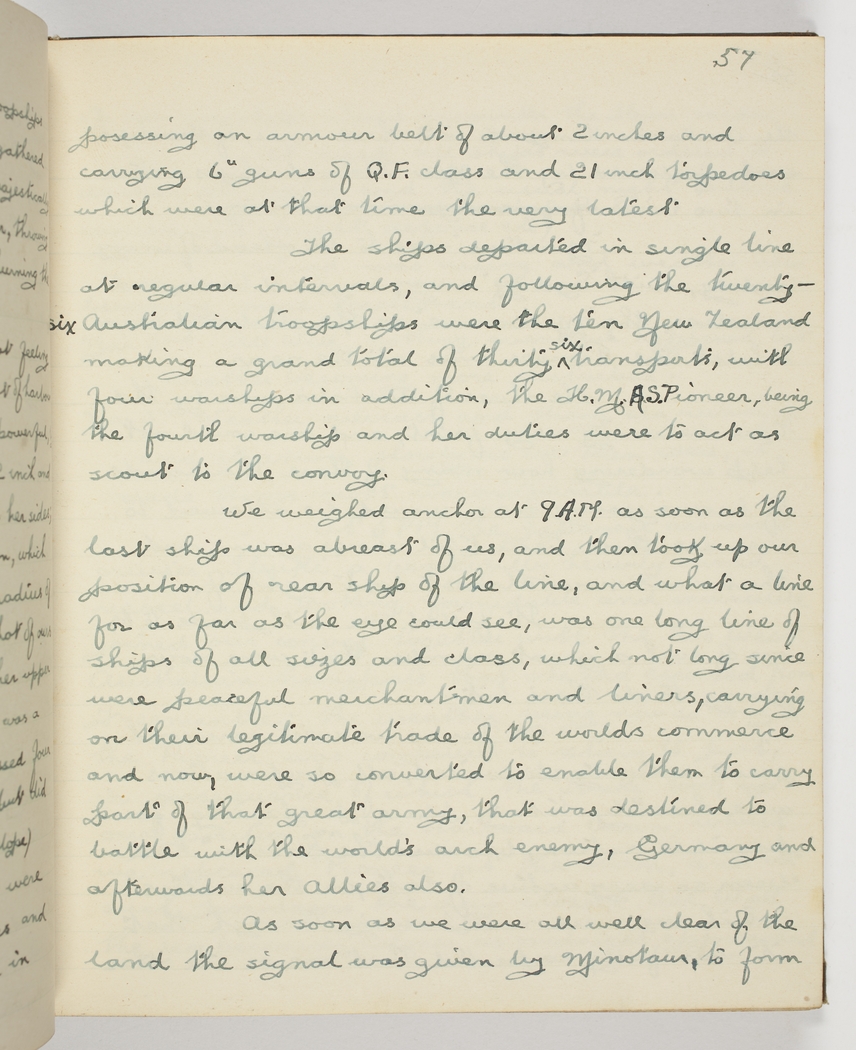 57
posessing an armour belt of about 2 inches and
carrying 6" guns of Q.F. class and 21 inch torpedoes
which were at that time the very latest
The ships departed in single line
at regular intervals, and following the twenty-
six Australian troopships were the ten New Zealand
making a grand total of thirty six transports, with
four warships in addition, the H.M.A.S. Pioneer, being
the fourth warship and her duties were to act as
scout to the convoy.
We weighed anchor at 9 A.M. as soon as the
last ship was abreast of us, and then took up our
position of rear ship of the line, and what a line
for as far as the eye could see, was one long line of
ships of all sizes and class, which not long since
were peaceful merchantmen and liners, carrying
on their legitimate trade of the worlds commerce
and now, were so converted to enable them to carry
part of that great army, that was destined to
battle with the world's arch enemy, Germany and
afterwards her Allies also.
As soon as we were all well clear of the
land the signal was given by Minotaur, to form